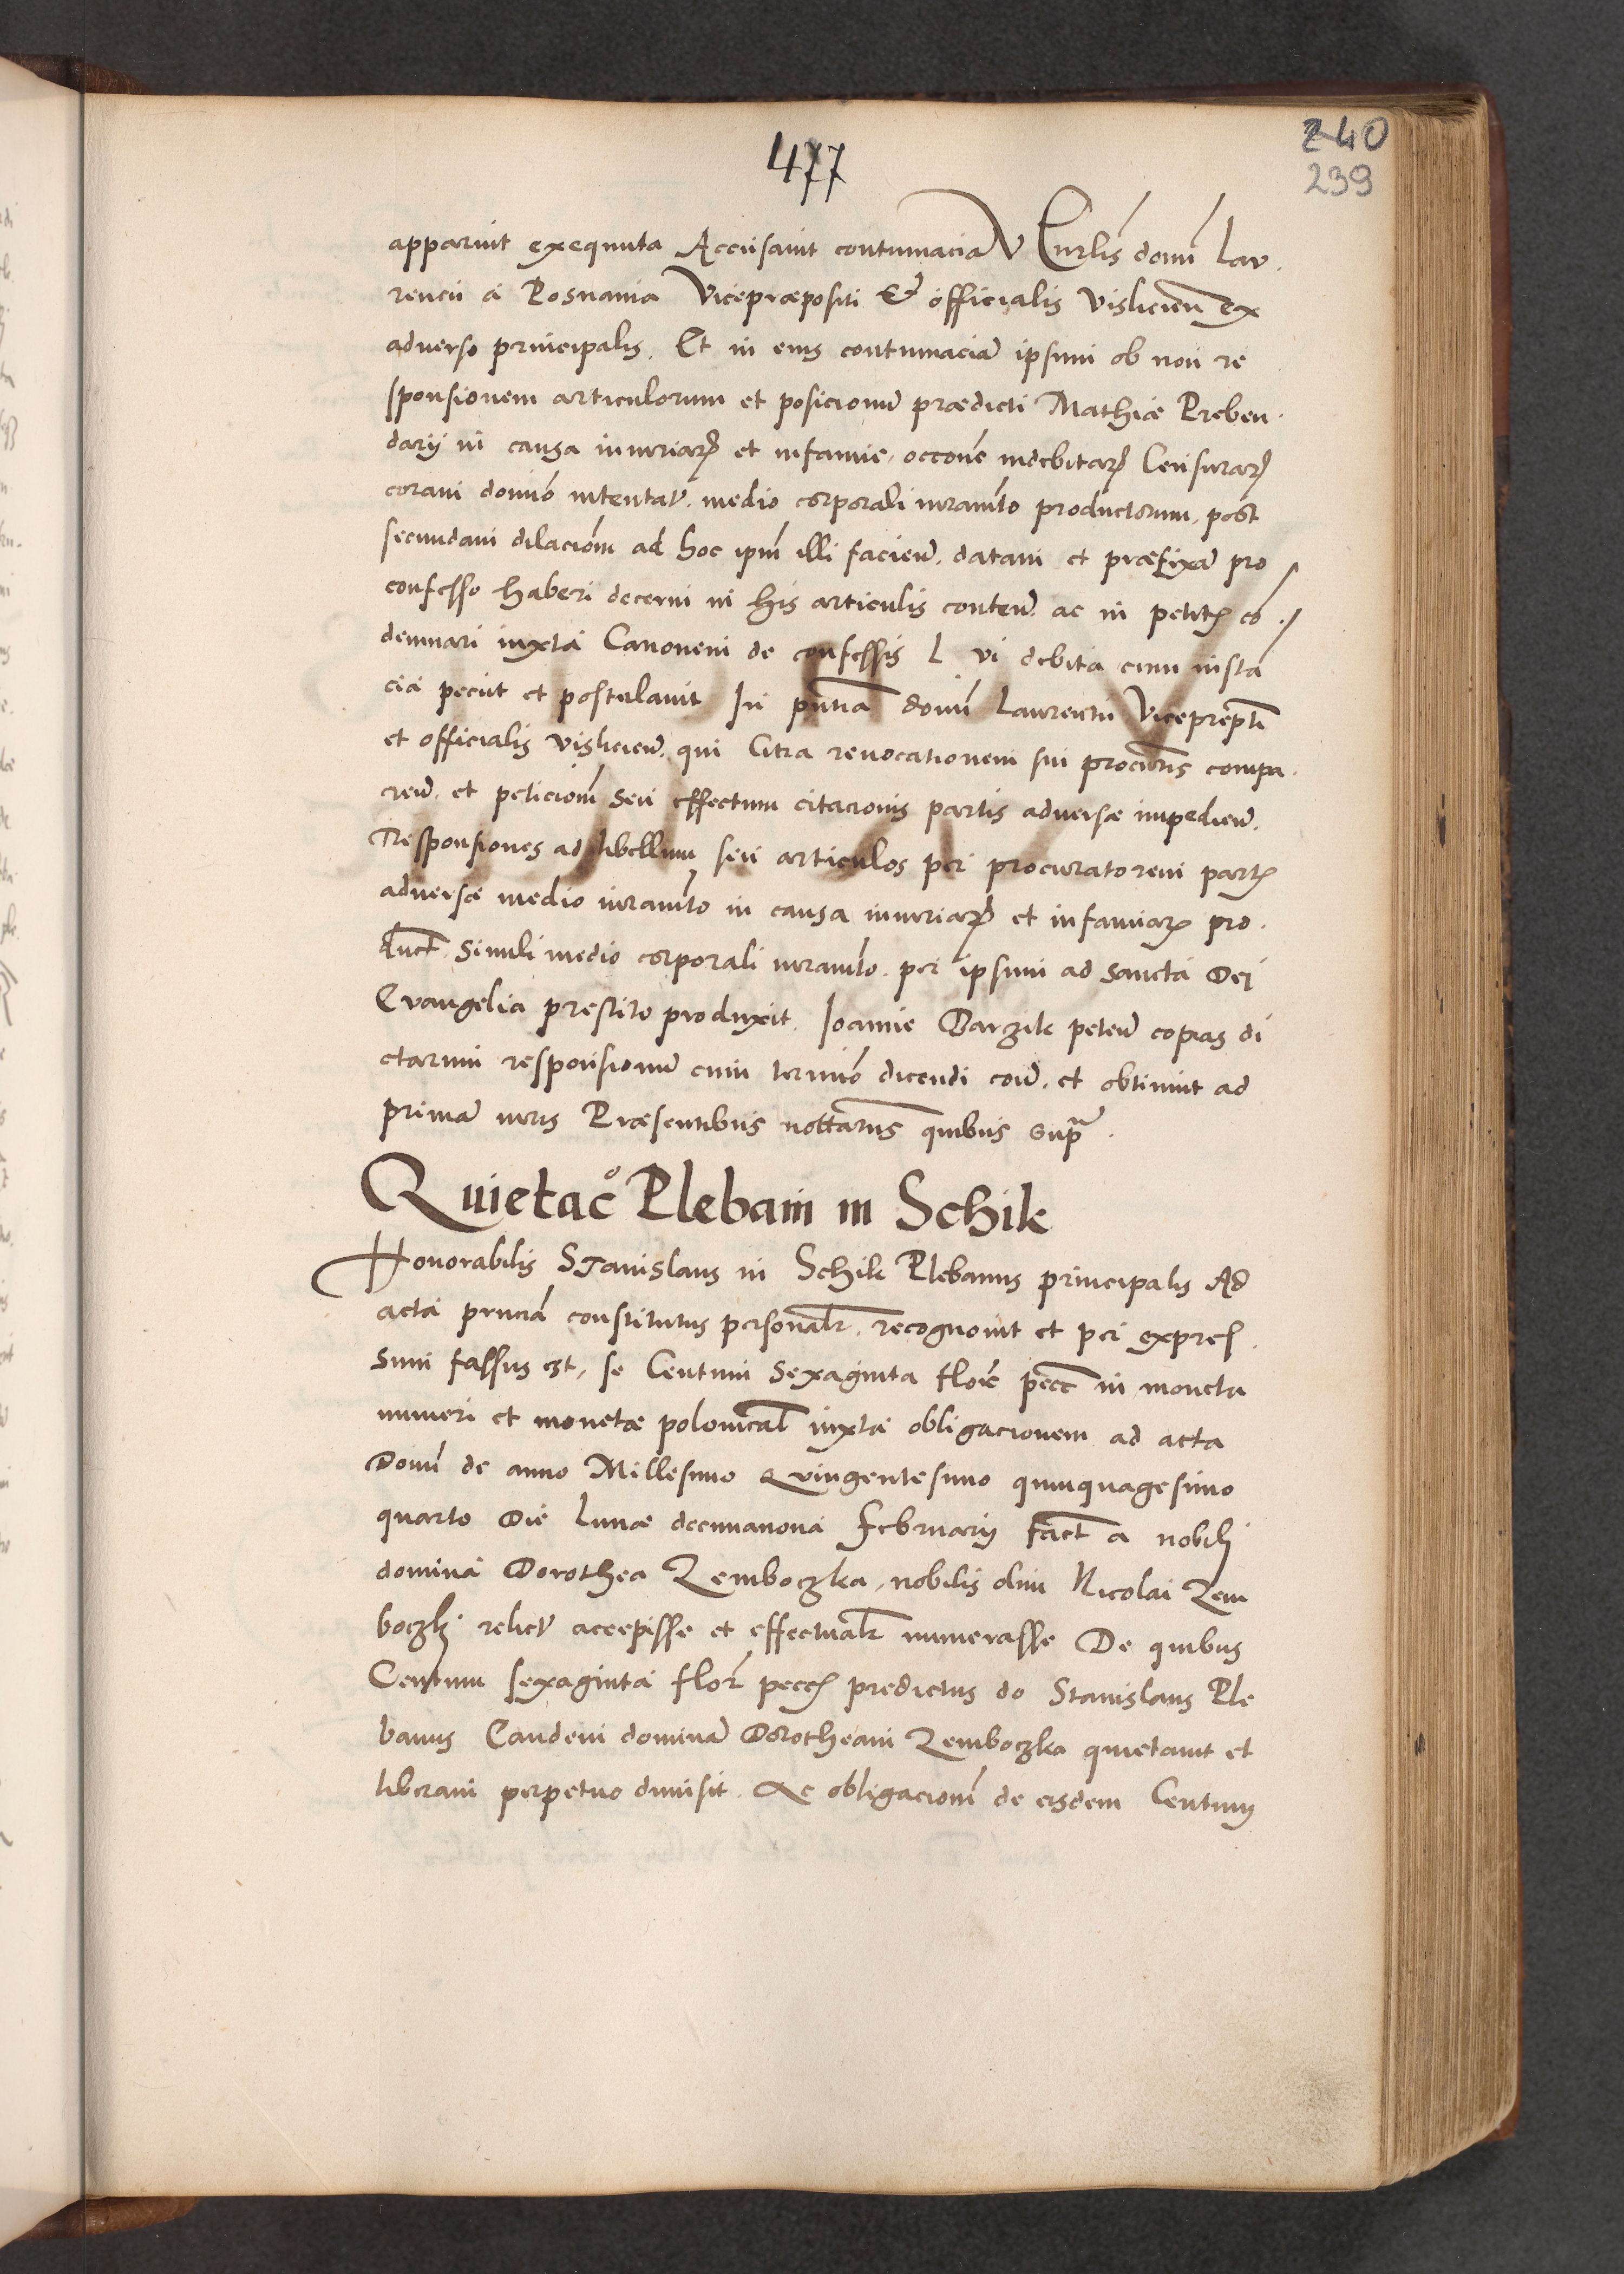 477
240
239
apparuit exequuta Accusavit contumacia V Curlis domī Lau
rencii a Posnania Vicepræpositi & officialis Visliciēn ex
adverso principalis. Et in eius contumaciā ipsum ob non re
sponsionem articulorum et posicionū prædicti Mathiæ Preben
darij in causa iniuriarȝ et infamie, occōne indebitarȝ Censurarȝ
coram domīo intentať. medio corporali iuramēto productorum, post
secundam dilacionē ad hoc ipm illi faciēn. datam et præfixā pro
confesso haberi decerni in his articulis contēn. ac in petitȝ cō
demnari iuxta Canonem de confessis L vi debita cum instā
cia peciit et postulavit In pūtia domī Laurentii Vicepræpti
et officialis visliciēn. qui Citra revocationem sui procuris compa
rēn. et peticionē seu effectum citacionis partis adversæ impediēn.
Responsiones ad libellum seu articulos per procuratorem partȝ
adversæ medio iuramēto in causa iniuriarȝ et infamiarȝ pro
duct. simili medio corporali iuramēto. per ipsum ad sancta Dei
Evangelia prestito produxit. Joanne Barzik petēn copias di
ctarum responsionū cum termīo dicendi con̄. et obtinuit ad
primā iuris Præsentibus nottariis quibus supᵃ.
Quietac̊ Plebani in Schik
Honorabilis Stanislaus in Schik Plebanus principalis Ad
acta prnciā constitutus personalr. recognovit et per expres
sum fassus est, se Centum Sexaginta florē pecc in moneta
numeri et monetæ polonical iuxta obligacionem ad acta
Domī de anno Millesimo Quingentesimo quinquagesimo
quarto Die Lunæ decimanona Februarij fact a nobili
domina Dorothea Zemboczka, nobilis olim Nicolai Zem
boczki relicť accepisse et effectualr numerasse De quibus
Centum sexaginta flor̄ pecc predictus do Stanislaus Ple
banus Eandem dominā Dorotheam Zemboczka quietavit et
liberam perpetuo dimisit. Ac obligacionē de eisdem Centum